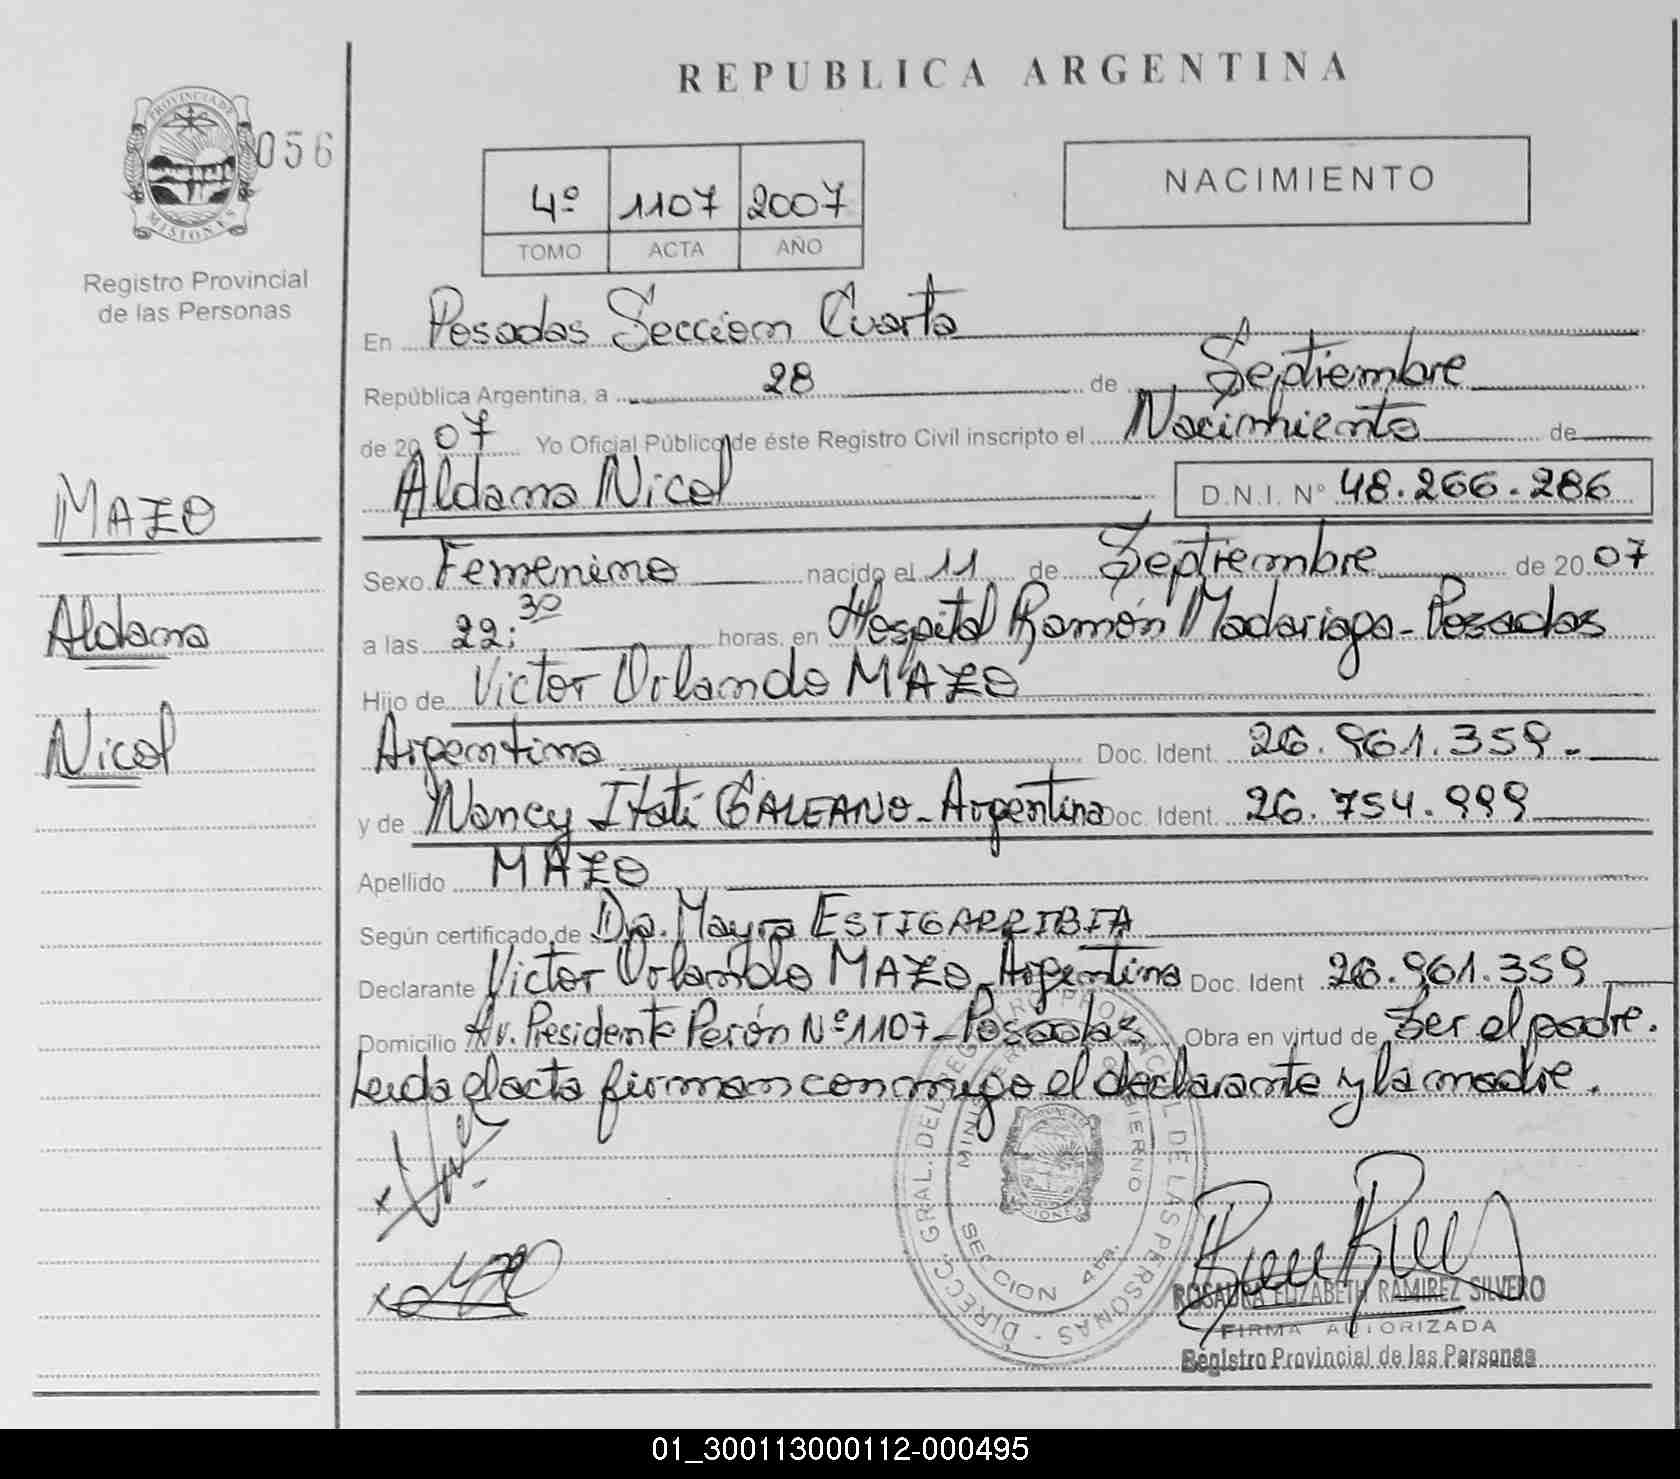 REPUBLICA ARGENTINA
PROVINCIA DE
MISIONES
056
Registro Provincial
de las Personas
4º 1107 2007
TOMO ACTA AÑO
NACIMIENTO
En Posadas Sección Cuarta
República Argentina, a 28 de Septiembre
de 2007 Yo Oficial Público de éste Registro Civil inscripto el Nacimiento de
Aldana Nicol D.N.I. Nº 48.266.286
MAZO
Aldana
Nicol
Sexo Femenino nacido el 11 de Septiembre de 2007
a las 22:30 horas, en Hospital Ramón Madariaga - Posadas
Hijo de Victor Orlando MAZO
Argentina Doc. Ident. 26.961.359.-
y de Nancy Itatí GALEANO - Argentina Doc. Ident. 26.754.999
Apellido MAZO
Según certificado de Dra. Mayra ESTIGARRIBIA
Declarante Victor Orlando MAZO - Argentino Doc. Ident 26.961.359
Domicilio Av. Presidente Perón Nº 1107 - Posadas Obra en virtud de Ser el padre.
Leida el acta firman conmigo el declarante y la madre.
DIRECC. GRAL. DEL REGISTRO PROVINCIAL DE LAS PERSONAS
SECCION 4ta.
ROSAURA ELIZABETH RAMIREZ SILVERO
FIRMA AUTORIZADA
Registro Provincial de las Personas
01_300113000112-000495